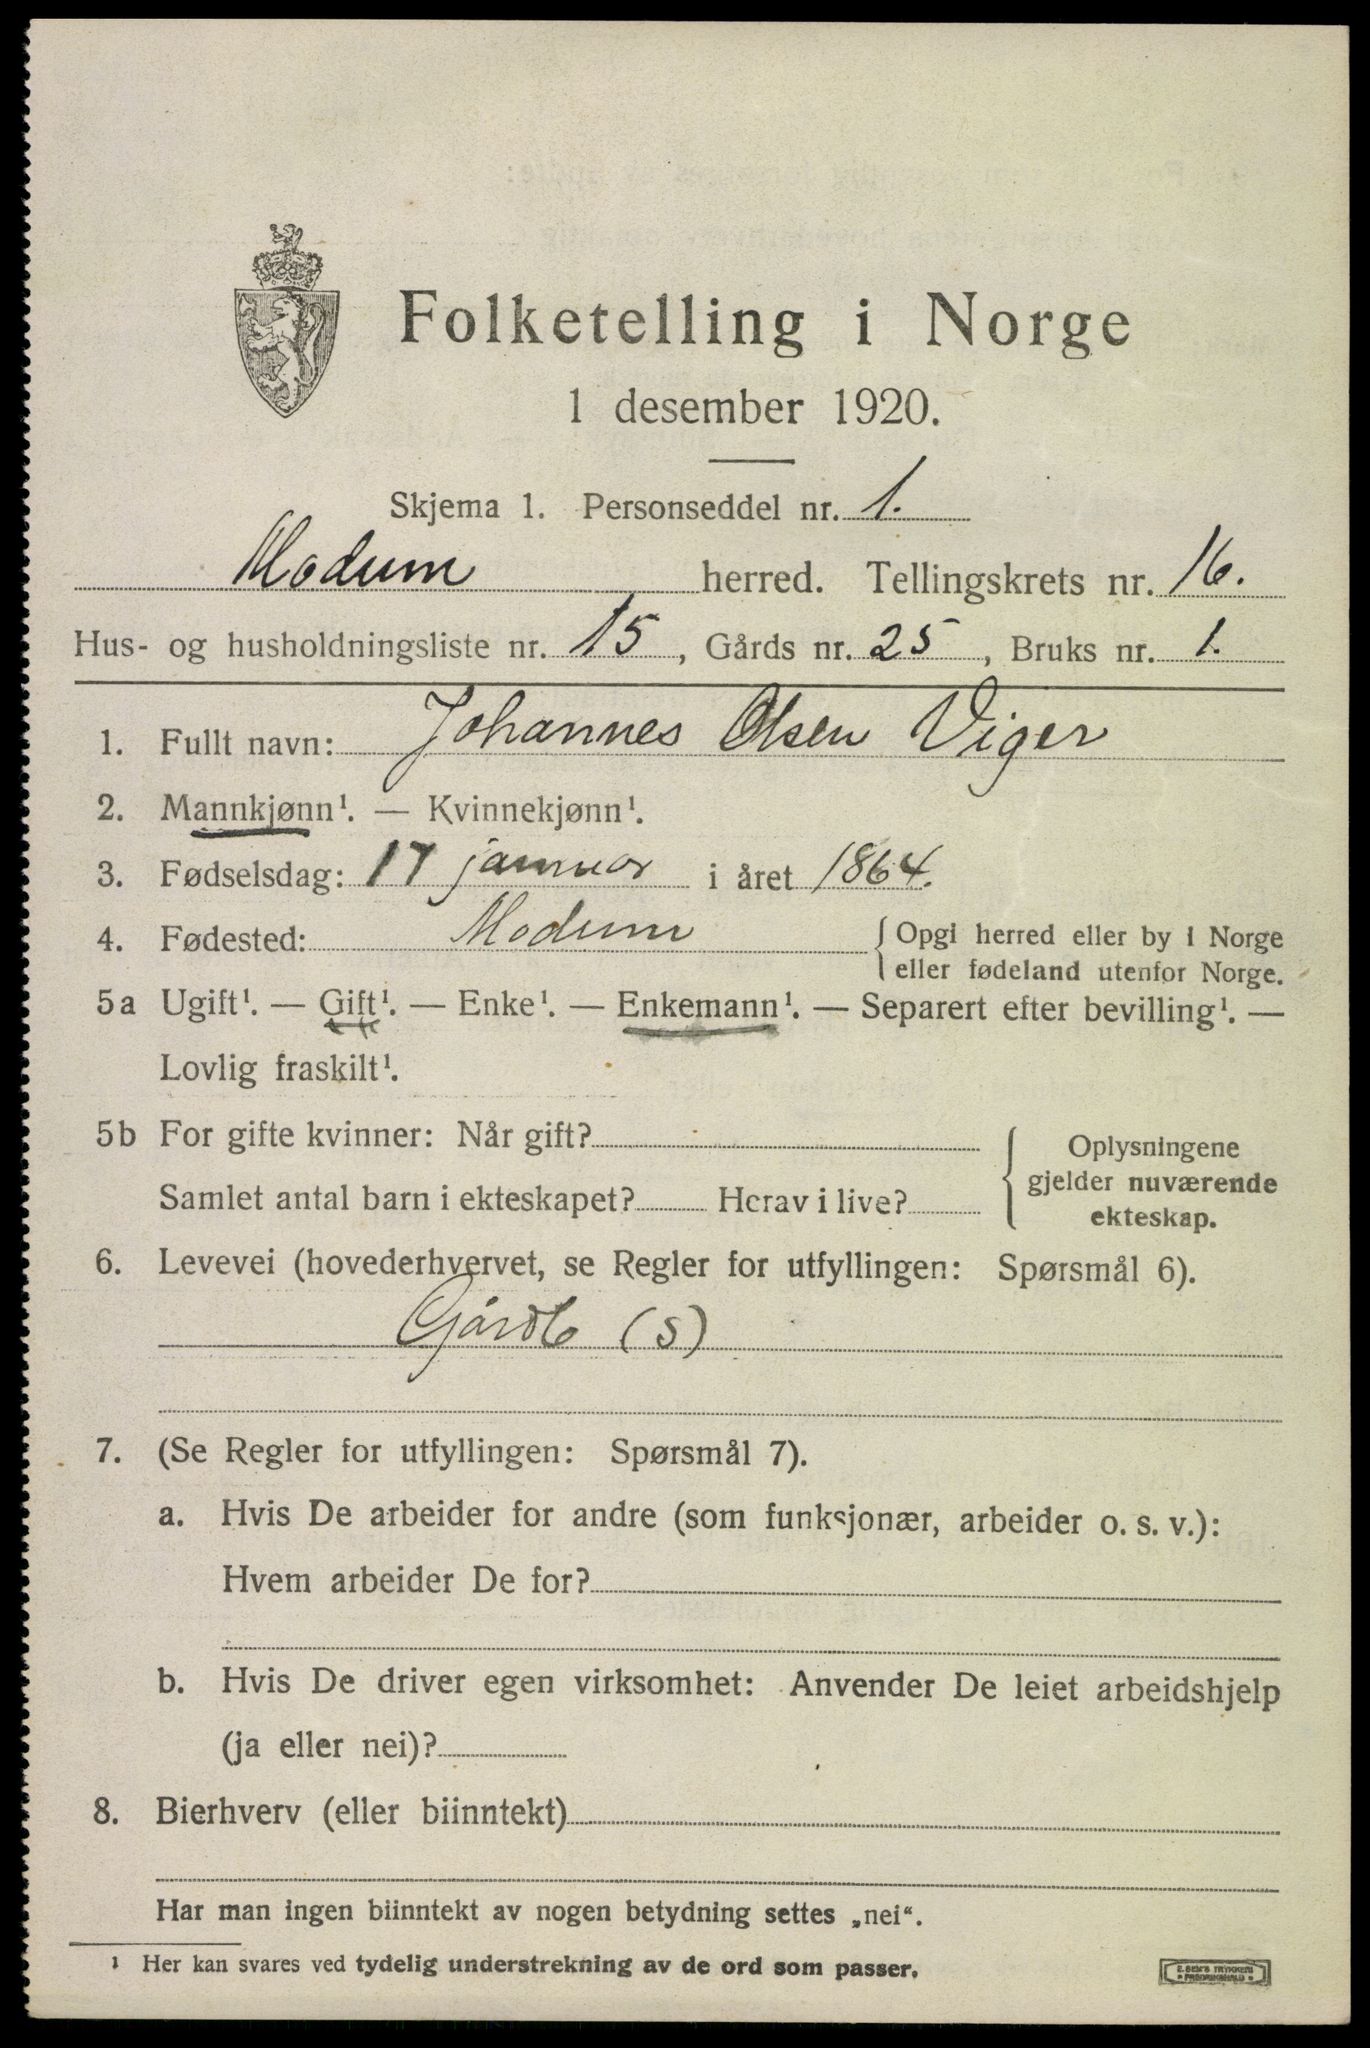 Folketelling i Norge
1 desember 1920.
Skjema 1. Personseddel nr. 1.
Modum herred. Tellingskrets nr. 16.
Hus- og husholdningsliste nr. 15, Gårds nr. 25, Bruks nr. 1.
1. Fullt navn: Johannes Olsen Viger
2. Mannkjønn¹. — Kvinnekjønn¹.
3. Fødselsdag: 17 januar i året 1864.
4. Fødested: Modum { Opgi herred eller by i Norge
eller fødeland utenfor Norge.
5a Ugift¹. — Gift¹. — Enke¹. — Enkemann¹. — Separert efter bevilling¹. —
Lovlig fraskilt¹.
5b For gifte kvinner: Når gift?
Samlet antal barn i ekteskapet? Herav i live?
{ Oplysningene
gjelder nuværende
ekteskap.
6. Levevei (hovederhvervet, se Regler for utfyllingen: Spørsmål 6).
Gårdb (s)
7. (Se Regler for utfyllingen: Spørsmål 7).
a. Hvis De arbeider for andre (som funksjonær, arbeider o. s. v.):
Hvem arbeider De for?
b. Hvis De driver egen virksomhet: Anvender De leiet arbeidshjelp
(ja eller nei)?
8. Bierhverv (eller biinntekt)
Har man ingen biinntekt av nogen betydning settes „nei“.
¹ Her kan svares ved tydelig understrekning av de ord som passer.
E. SEM'S TRYKKERI
FREDRIKSHALD